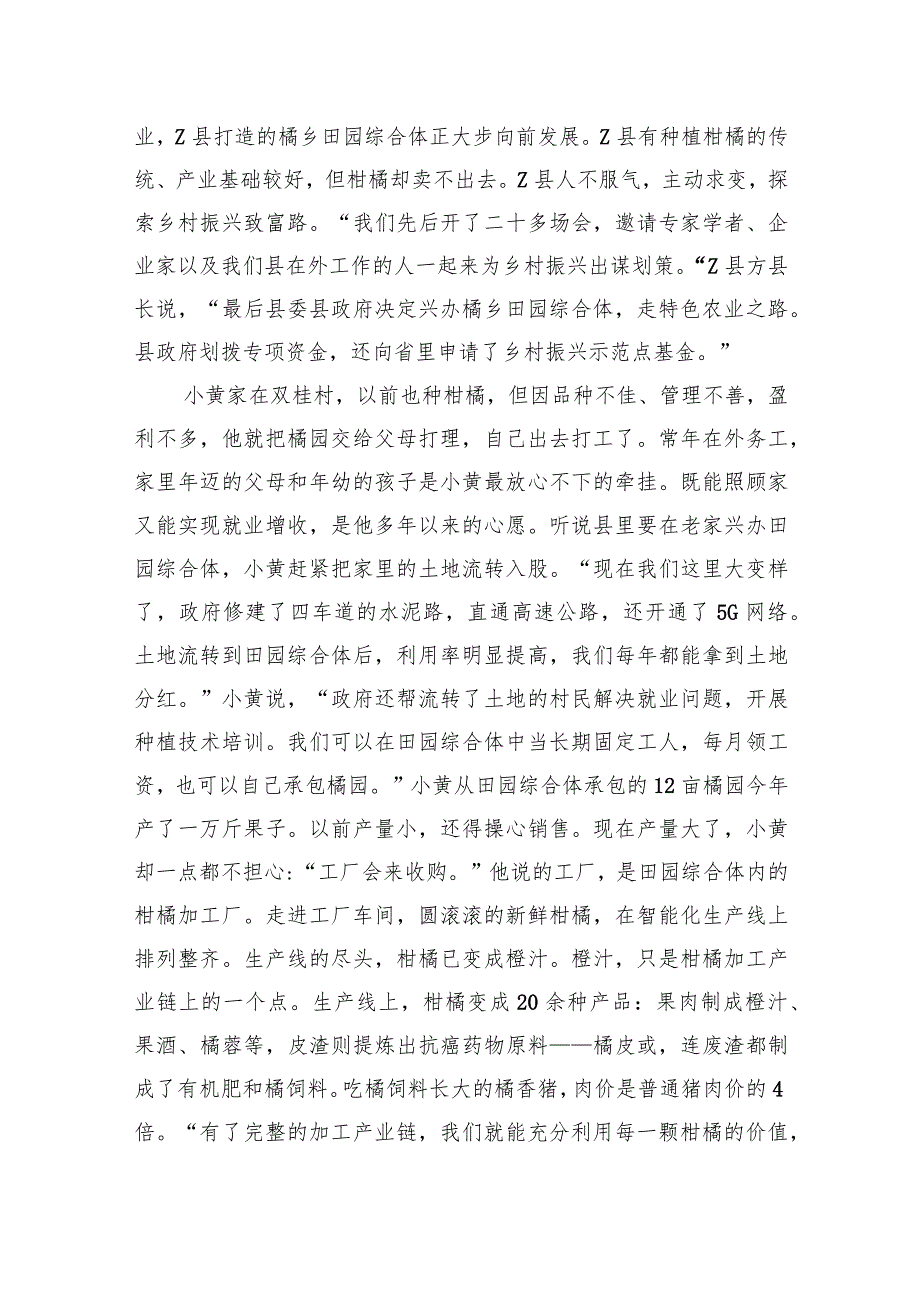 业，Z 县打造的橘乡田园综合体正大步向前发展。Z 县有种植柑橘的传
统、产业基础较好，但柑橘却卖不出去。Z 县人不服气，主动求变，探
索乡村振兴致富路。“我们先后开了二十多场会，邀请专家学者、企
业家以及我们县在外工作的人一起来为乡村振兴出谋划策。“Z 县方县
长说，“最后县委县政府决定兴办橘乡田园综合体，走特色农业之路。
县政府划拨专项资金，还向省里申请了乡村振兴示范点基金。”
小黄家在双桂村，以前也种柑橘，但因品种不佳、管理不善，盈
利不多，他就把橘园交给父母打理，自己出去打工了。常年在外务工，
家里年迈的父母和年幼的孩子是小黄最放心不下的牵挂。既能照顾家
又能实现就业增收，是他多年以来的心愿。听说县里要在老家兴办田
园综合体，小黄赶紧把家里的土地流转入股。“现在我们这里大变样
了，政府修建了四车道的水泥路，直通高速公路，还开通了 5G 网络。
土地流转到田园综合体后，利用率明显提高，我们每年都能拿到土地
分红。”小黄说，“政府还帮流转了土地的村民解决就业问题，开展
种植技术培训。我们可以在田园综合体中当长期固定工人，每月领工
资，也可以自己承包橘园。”小黄从田园综合体承包的 12 亩橘园今年
产了一万斤果子。以前产量小，还得操心销售。现在产量大了，小黄
却一点都不担心：“工厂会来收购。”他说的工厂，是田园综合体内的
柑橘加工厂。走进工厂车间，圆滚滚的新鲜柑橘，在智能化生产线上
排列整齐。生产线的尽头，柑橘已变成橙汁。橙汁，只是柑橘加工产
业链上的一个点。生产线上，柑橘变成 20 余种产品：果肉制成橙汁、
果酒、橘蓉等，皮渣则提炼出抗癌药物原料——橘皮或，连废渣都制
成了有机肥和橘饲料。吃橘饲料长大的橘香猪，肉价是普通猪肉价的 4
倍。“有了完整的加工产业链，我们就能充分利用每一颗柑橘的价值，